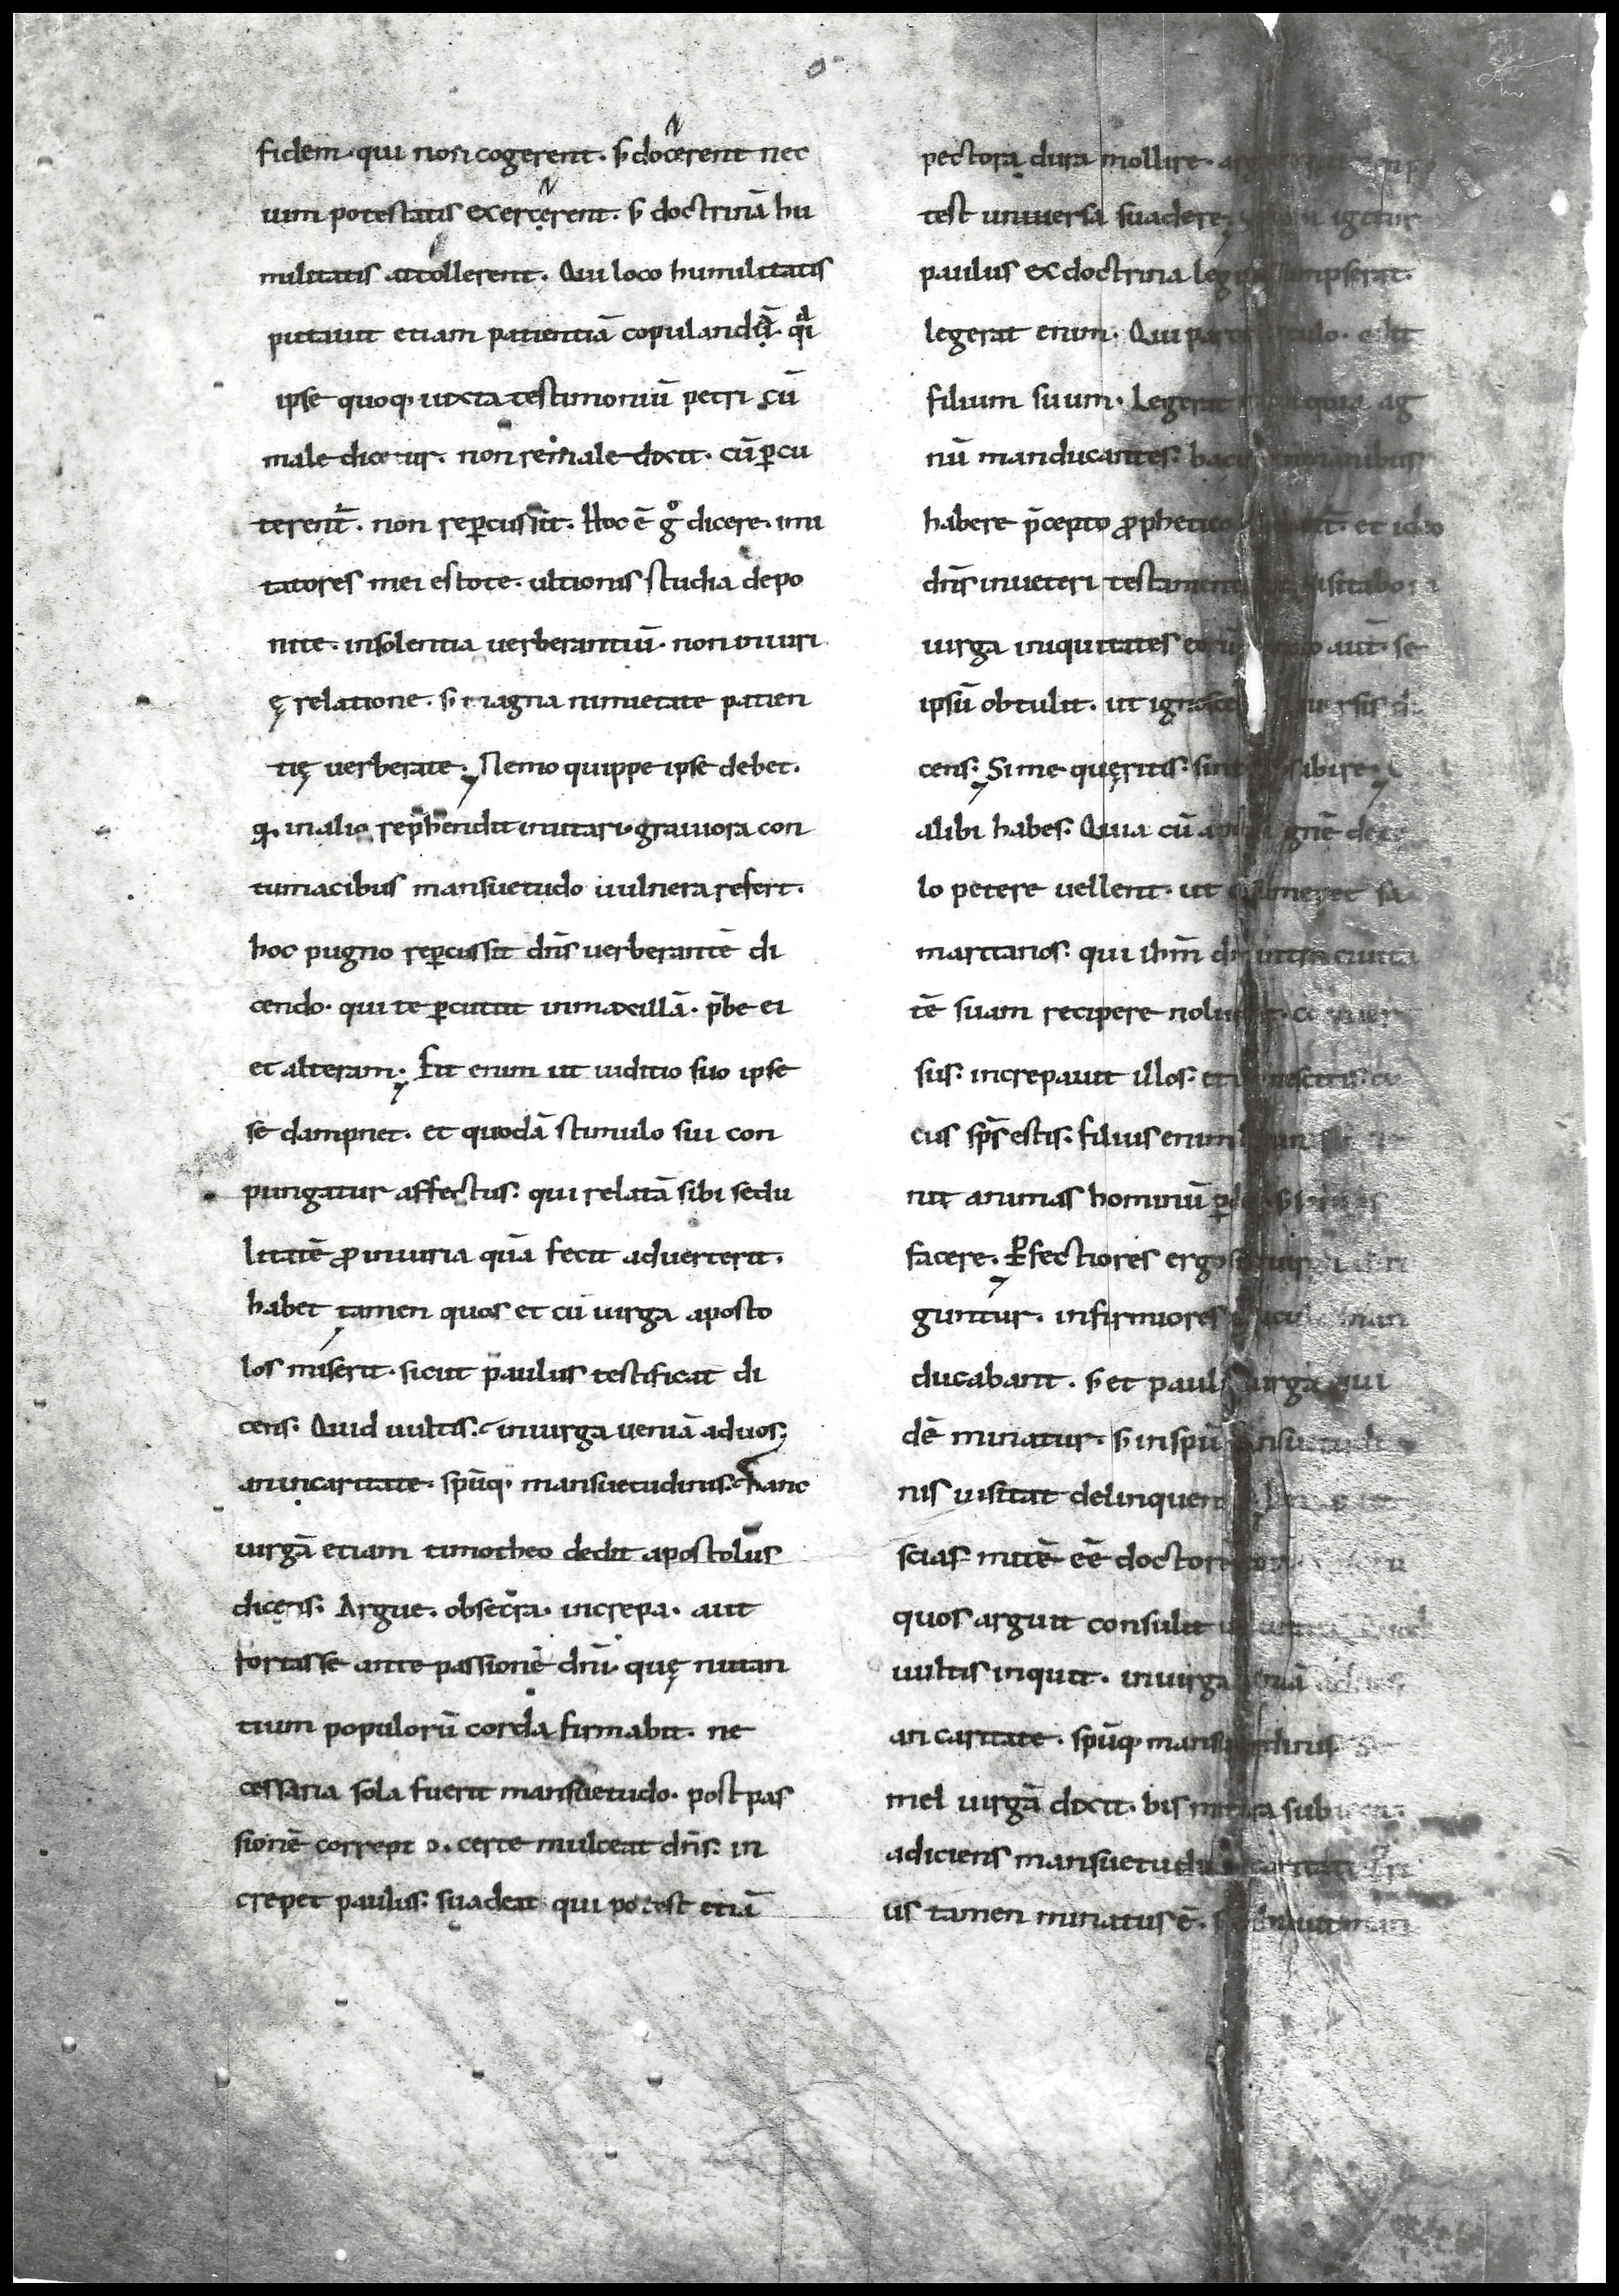 fidem · qui non cogerent · s̄ docerent nec
uim potestatis excercerent · s̄ doctrinā hu
militatis attollerent · Qui loco humilitatis
putauit etiam patientiā copulandā · q̄a
ipse quoq; iuxta testimoniū petri cū
male diceretur · non remale dixit · cū ꝑcu
terent̄ · non reꝑcussit · Hoc ē gͦ dicere · imi
tatores mei estote · ultionis studia depo
nite · insolentia uerberantiū · non iniuri
ę relatione · s̄ magna nimietate patien
tię uerberate · Nemo quippe ipse debet ·
qd̄ in alio rep̄hendit imitari · grauiora con
tumacibus mansuetudo uulnera refert ·
hoc pugno reꝑcussit dn̄s uerberantē di
cendo · qui te ꝑcutit in maxillā · p̄be ei
et alteram · Fit enim ut iuditio suo ipse
se dampnet · et quodā stimulo sui con
pungatur affectus · qui relatā sibi sedu
litatē ꝓ iniuria quā fecit aduerterit ·
habet tamen quos et cū uirga aposto
los miserit · sicut paulus testificat di
cens · Quid uultis · in uirga ueniā ad uos ·
an in caritate · spūq; mansuetudinis · hanc
uirgā etiam timotheo dedit apostolus
dicens · Argue · obsecra · increpa · aut
fortasse ante passionē dn̄i · quę nutan
tium populorū corda firmabit · ne
cessaria sola fuerit mansuetudo · post pas
sionē correptio · certe mulceat dn̄s · in
crepet paulus · suadeat qui potest etiā
pectora dura mollire ·
test uniuersa suadere · igitur
paulus ex doctrina legis sumpserat ·
legerat enim · Qui parcit baculo · odit
filium suum · Legerat quia ag
nū manducantes · bacu in manibus
habere p̄cepto ꝓphetico et ideo
dn̄s in ueteri testamento uisitabo
uirga iniquitates eorū aut̄ se
ipsū obtulit · ut ignosceret uniuersis di
cens · Si me quęritis · sinite abire ·
alibi habes · Quia cū apostoli ignē de ce
lo petere uellent · ut consumeret sa
maritanos · qui ih̄m dn̄ intra ciuita
tē suam recipere noluerunt · conuer
sus · increpauit illos · nescitis · cu
ius sp̄s estis · filius enim
nit animas hominū ꝑdere
facere · Ꝑfectiores ergo sine uirga diri
guntur · infirmiores man
ducabant · s̄ et paulus uirga qui
dē minatur · s̄ in spū mansuetudi
nis uisitat delinquentes
scias mitē eē doctorem
quos arguit consulit
uultis inquit · in uirga ueniā ad uos
an caritate · spūq; mansuetudinis Se
mel uirgā dixit · bis mitiora subiecit
adiciens mansuetudinē caritati
us tamen minatus ē ·